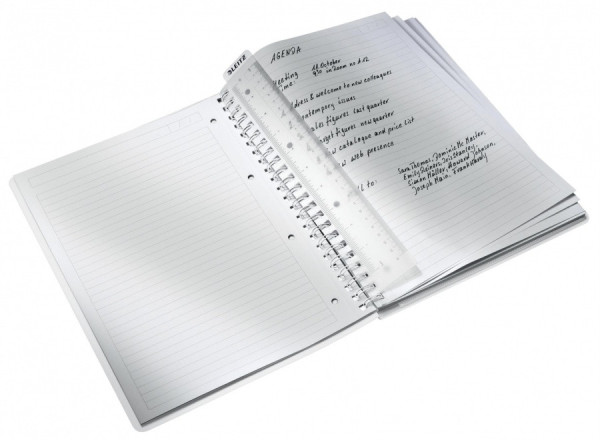 LEITZ
AGENDA
eeting 18. October
ime: 9:30 in room no 4.12
dress & welcome to new colleagues
ontempory issues
ales figures last quarter
dget figures new quarter
w catalogue and price list
w web presence
l to: Sara Thomas, Dominic Mc Master,
Emily Reiners, Iris Stanley,
Simon Müller, Howard Johnson,
Joseph Main, Frank Healy